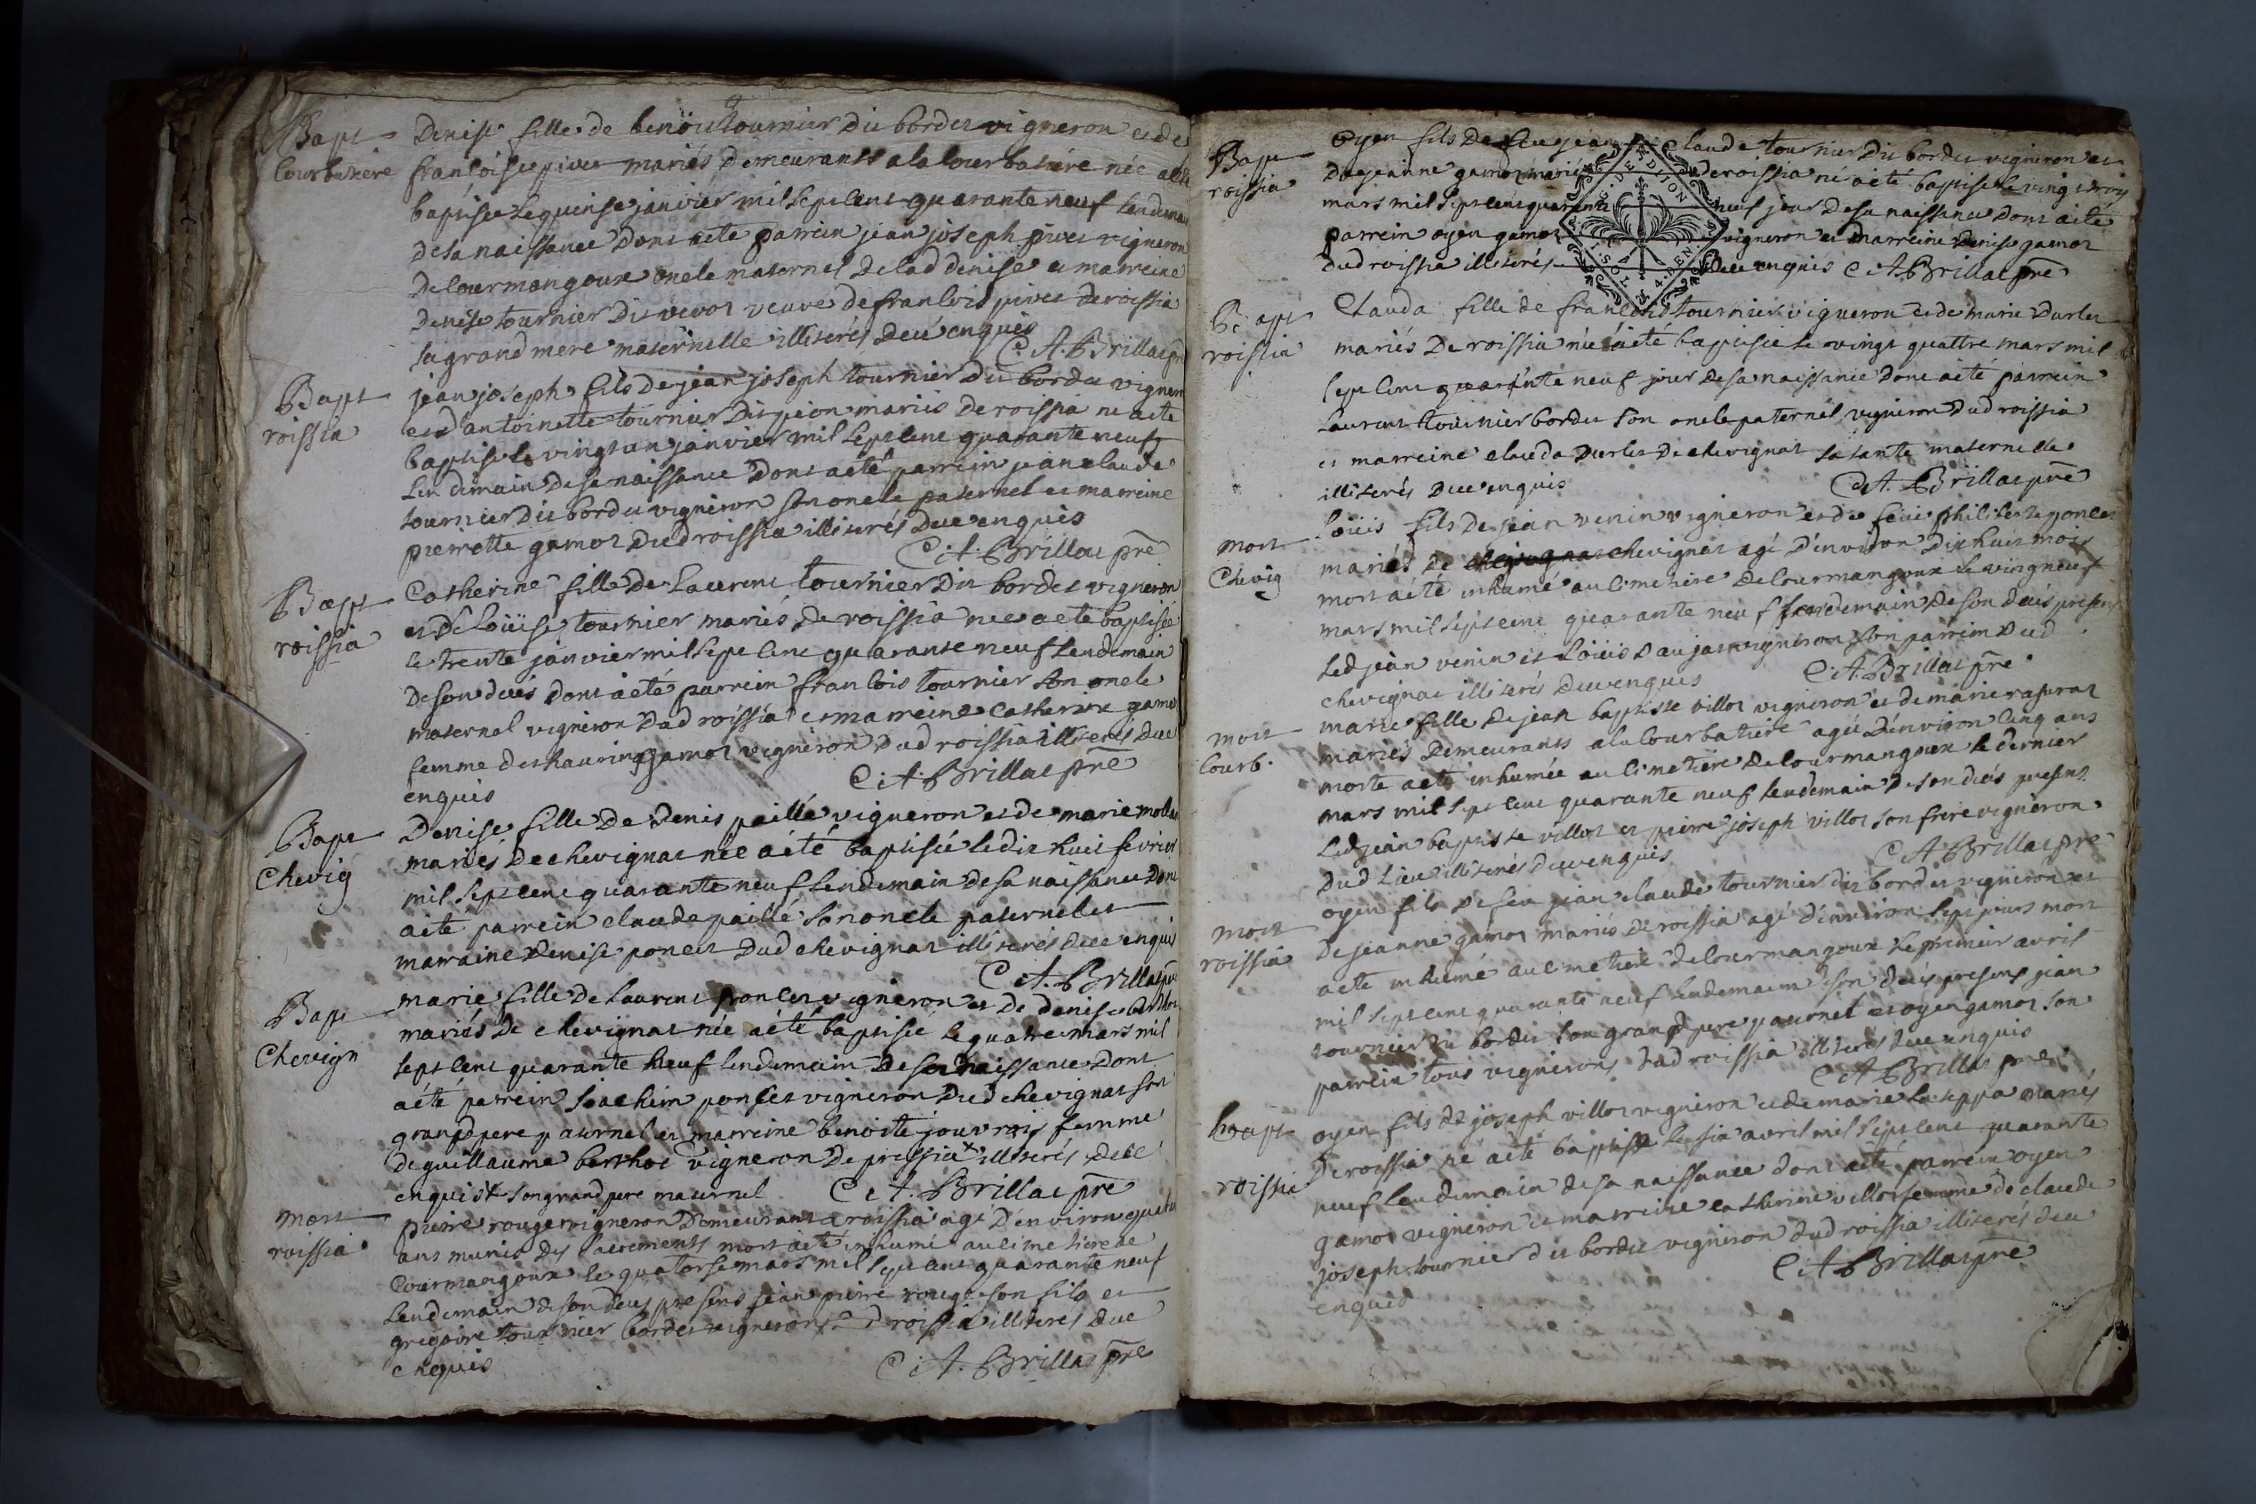 Bapt
Courbatiere
Denise fille de benoit tournier dit bordet vigneron et de
francoise pivet mariés demeurants a la courbatiere née a été
baptisée le quinse janvier mil sept cent quarante neuf lendemain
de sa naissance dont a été parrein jean joseph pivet vigneron
de courmangoux oncle maternel de lad denise et marreine
denise tournier dit vevot veuve de francois pivet de roissia
sa grand mere maternelle illiterés de ce enquis
C. A. Brillat pre
Bapt
roissia
jean joseph fils de jean joseph tournier dit bordet vigneron
et d'antoinette tournier dit pion mariés de roissia né a été
baptisé le vingt un janvier mil sept cent quarante neuf
lendemain de sa naissance dont a été parrein jean claude
tournier dit bordet vigneron son oncle paternel et marreine
pierrette gamot dud roissia illiterés de ce enquis
C. A. Brillat pre
Bapt
roissia
Catherine fille de Laurent tournier dit bordet vigneron
et de Loüise tournier mariés de roissia née a été baptisée
le trente janvier mil sept cent quarante neuf lendemain
de son deces dont a été parrein francois tournier son oncle
maternel vigneron dud roissia et marreine Catherine gamot
femme de thaurin gamot vigneron dud roissia illiterés de ce
enquis
C. A. Brillat pre
Bapt
Chevig
Denise fille de Denis paillé vigneron et de marie
mariés de chevignat née a été baptisée le dix huit fevrier
mil sept cent quarante neuf lendemain de sa naissance dont
a été parrein claude paillé son oncle paternel et
marraine Denise poncet dud chevignat illiterés de ce enquis
C. A. Brillat pre
Bapt
Chevign
marie fille de Laurent poncet vigneron et de denise berthot
mariés de chevignat née a été baptisée le quatre mars mil
sept cent quarante neuf lendemain de sa naissance dont
a été parrein joachim poncet vigneron dud chevignat son
grand pere paternel et marreine benoite jouvrois femme
de guillaume berthot vigneron de pressia x illiterés de ce
enquis x son grand pere maternel C. A. Brillat pre
mort
roissia
pierre rouge vigneron demeurant a roissia agé d'environ
ans munis des sacrements mort a été inhumé au cimetiere de
Courmangoux le quatorse mars mil sept cent quarante neuf
lendemain de son deces presents jean pierre rouge son fils et
gregoire tournier bordet vignerons d roissia illiterés de ce
enquis
C. A. Brillat pre
Bapt
roissia
Oyen fils de feu jean claude tournier dit bordet vigneron et
de jeanne gamot mariés de roissia né a été baptisé le vingt trois
mars mil sept cent quarante neuf jour de sa naissance dont a été
parrein oyen gamot vigneron et marreine Denise gamot
dud roissia illiterés de ce enquis C. A. Brillat pre
G. DE DIJON
Bapt
roissia
Clauda fille de francois tournier vigneron et de marie Darlet
mariés de roissia née a été baptisée le vingt quattre mars mil
sept cent quarante neuf jour de sa naissance dont a été parrein
Laurent tournier bordet son oncle paternel vigneron dud roissia
et marreine clauda Darlet de chevignat sa tante maternelle
illiterés de ce enquis
C. A. Brillat pre
mort
Chevig
Loüis fils de jean venin vigneron et de feüe philiberte poncet
mariés de chevignat agé d'environ dix huit mois
mort a été inhumé au cimetiere de Courmangoux le vingt neuf
mars mil sept cent quarante neuf lendemain de son deces presents
led jean venin et Loüis Daujat vigneron son parrein dud
chevignat illiterés de ce enquis
C. A. Brillat pre
mort
Courb.
marie fille de jean baptiste villot vigneron et de marie
mariés demeurants a la Courbatiere agée d'environ cinq ans
morte a été inhumée au cimetiere de Courmangoux le dernier
mars mil sept cent quarante neuf lendemain de son deces presents
led jean baptiste villot et pierre joseph villot son frere vignerons
dud lieu illiterés de ce enquis
C. A. Brillat pre
mort
roissia
oyen fils de feu jean claude tournier dit bordet vigneron et
de jeanne gamot mariés de roissia agé d'environ sept jours mort
a été inhumé au cimetiere de Courmangoux le premier avril
mil sept cent quarante neuf lendemain de son deces presents jean
tournier dit bordet son grand pere paternel et oyen gamot son
parrein tous vignerons dud roissia illiterés de ce enquis
C. A. Brillat pre
bapt
roissia
oyen fils de joseph villot vigneron et de marie mariés
de roissia né a été baptisé le six avril mil sept cent quarante
neuf lendemain de sa naissance dont a été parrein oyen
gamot vigneron et marreine catherine villot femme de claude
joseph tournier dit bordet vigneron dud roissia illiterés de ce
enquis
C. A. Brillat pre